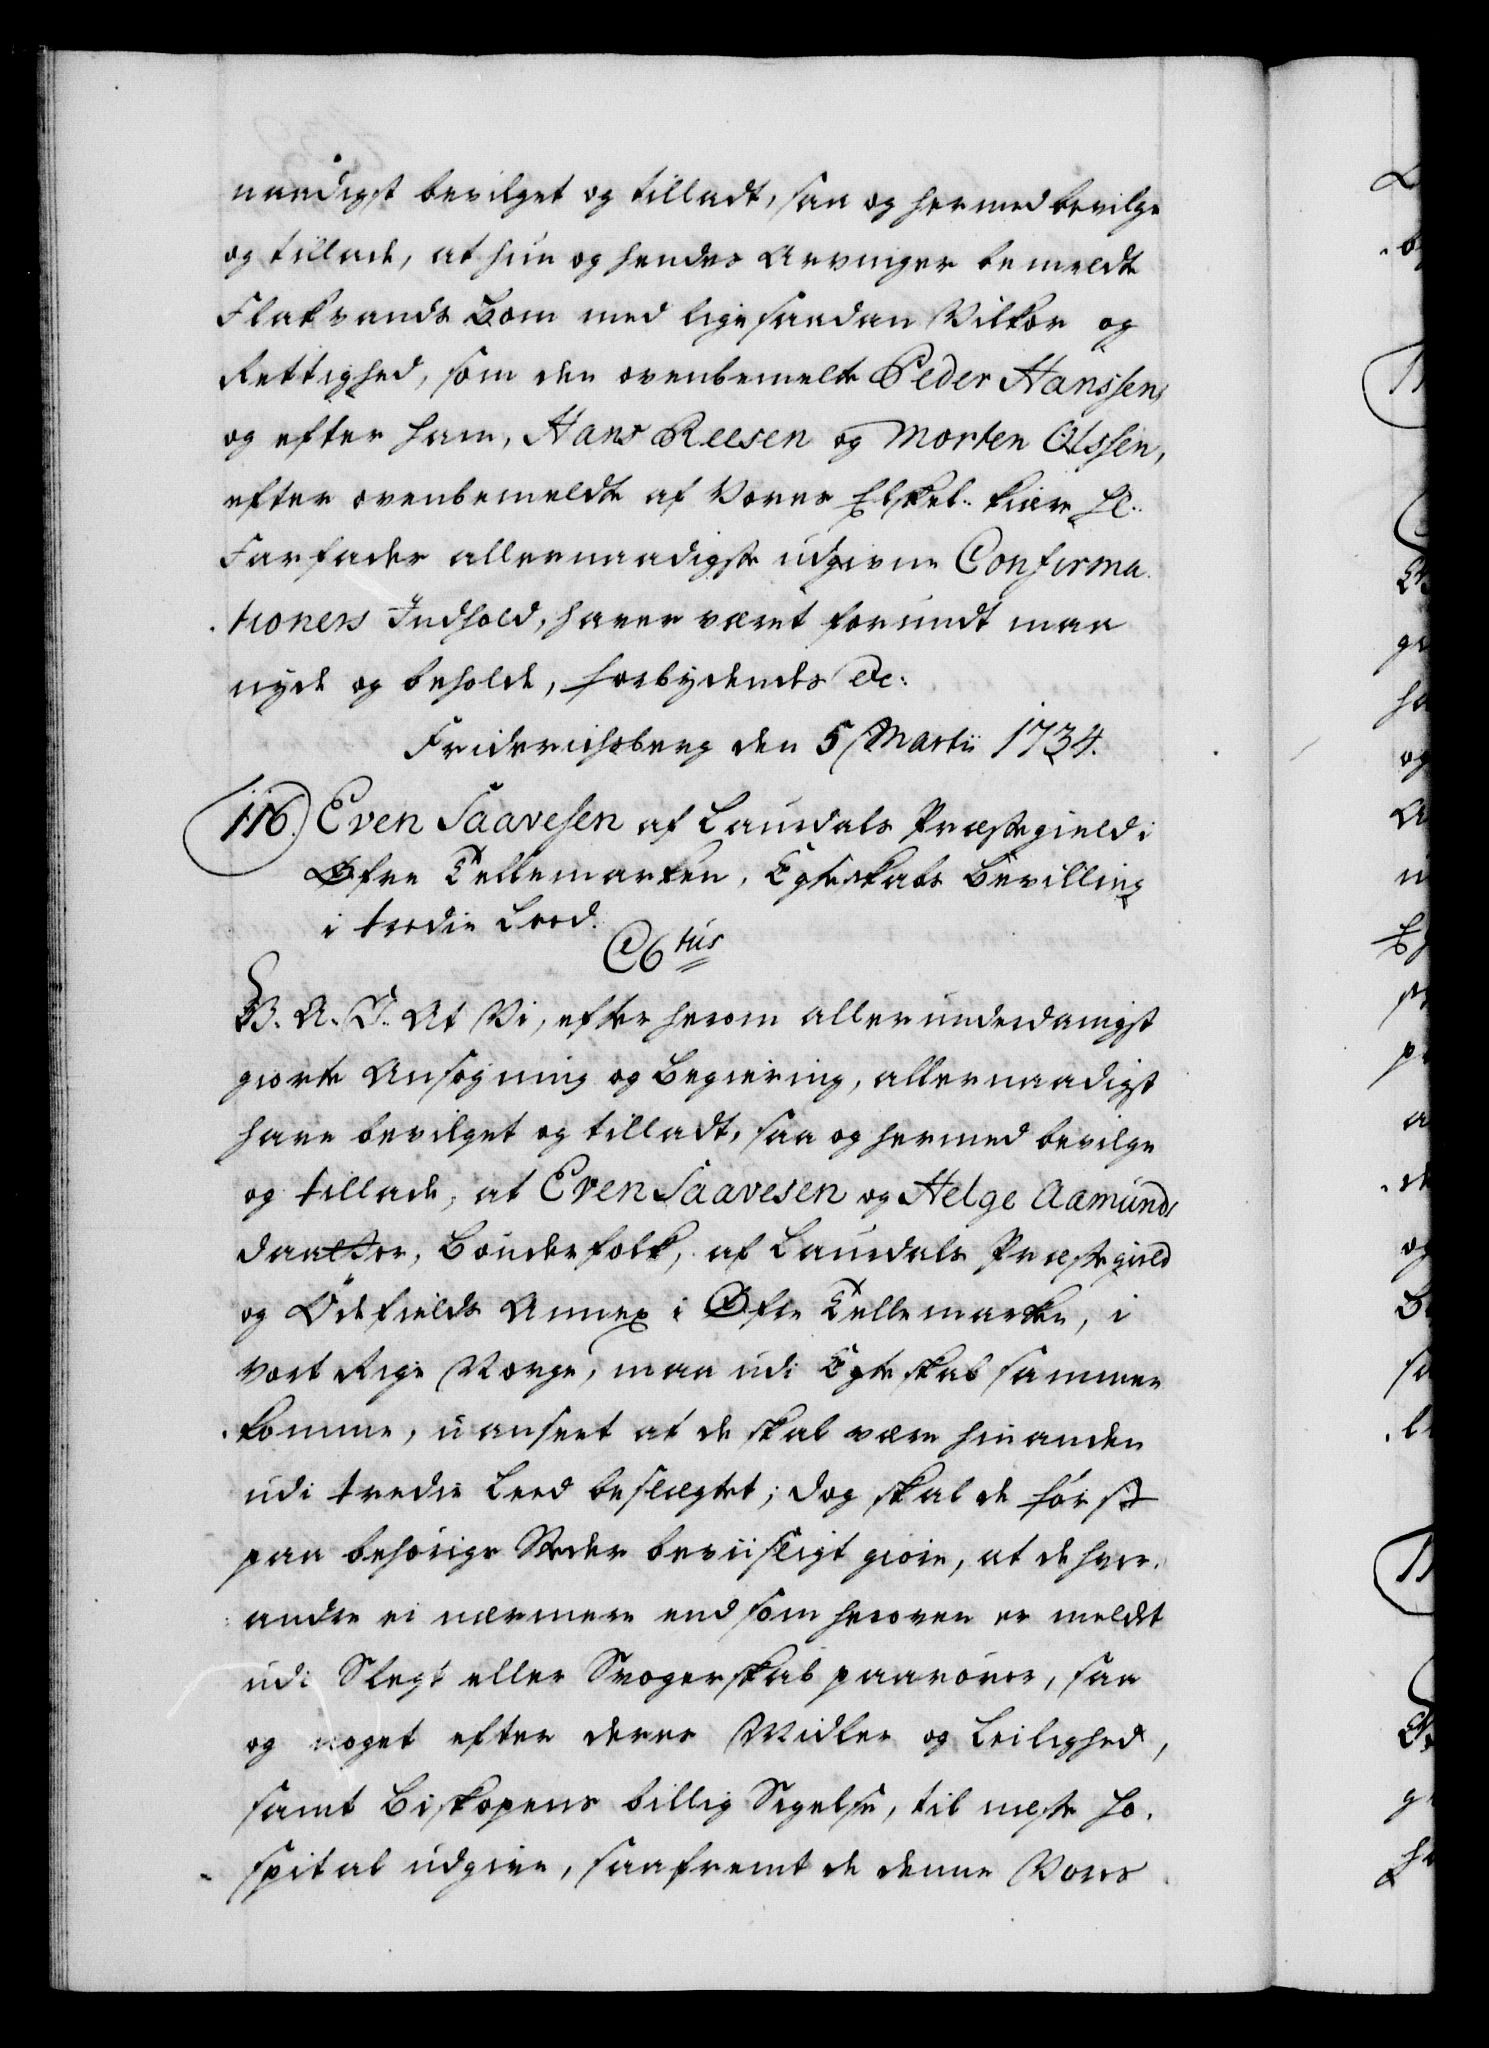 naadigst bevilget og tilladt, saa og hermed bevilge
og tillade, at hun og hendes Arvinger bemeldte
Flakvands Bom med lige saadan Vilkor og
Rettighed, som den ovenbemelte Peder Hanssens
og efter ham, Hans Reesen og Morten Olssen,
efter ovenbemeldte af Vores Elskel: kiære Hl:
Farfader allernaadigste udgivne Confirma
tioners Indhold, haver været forundt maa
nyde og beholde, forbydendes &c:
Friderichsberg den 5 Martii 1734.
116. Even Saavesen af Laurdals Præstegield i
Øfre Tellemarken, Egteskabs Bevilling
i tredie Leed.
C6tus
G. A. V. At Vi, efter herom allerunderdanigst
giorte Ansøgning og Begiering, allernaadigst
have bevilget og tilladt, saa og hermed bevilge
og tillade, at Even Saavesen og Helge Aamunds
daatter, Bønderfolk, af Laurdals Præstegield
og Ödefields Annex i Øfre Tellemarke, i
Vort Rige Norge, maa udi Egteskab sammen
komme, uanseet at de skal være hinanden
udi tredie Leed beslægtet; dog skal de først
paa behörige Steder beviisligt giøre, at de hver
andre ei nærmere end som heroven er meldt
udi Slegt eller Svogerskab paarörer, saa
og noget efter deres Midler og Leilighed,
samt Biskopens billig Sigelse, til neste Ho
spital udgive, saafremt de denne Vores